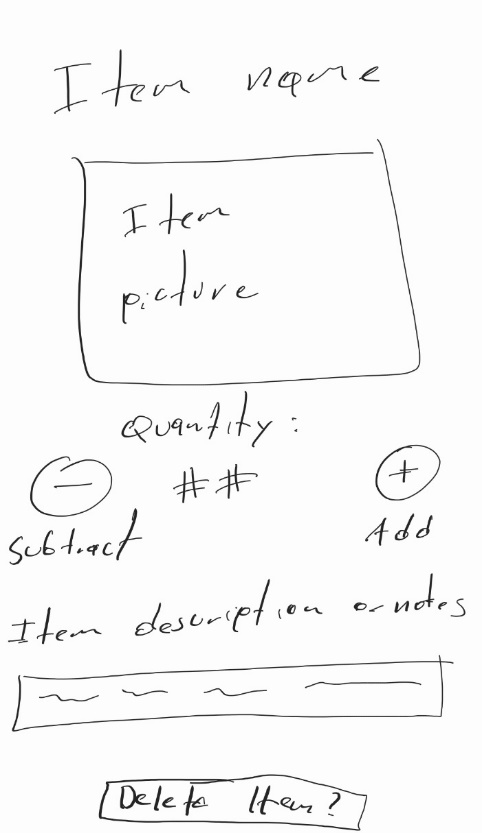 Item name
Item
picture
Quantity:
− ## +
Subtract Add
Item description or notes
Delete Item?